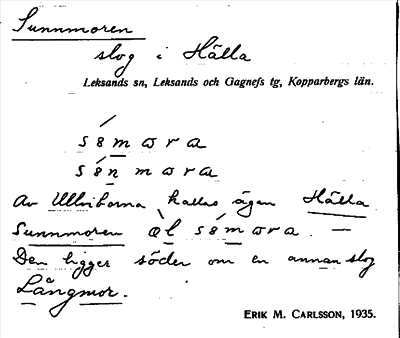 Sunnmoren
slog i Hälla
Leksands sn, Leksands och Gagnefs tg, Kopparbergs län.
s8mωra
s8nmωra
Av Ullviborna kallas ägan Hälla
Sunnmoren æl s8mωra. —
Den ligger söder om en annan slog
Långmor.
ERIK M. CARLSSON, 1935.